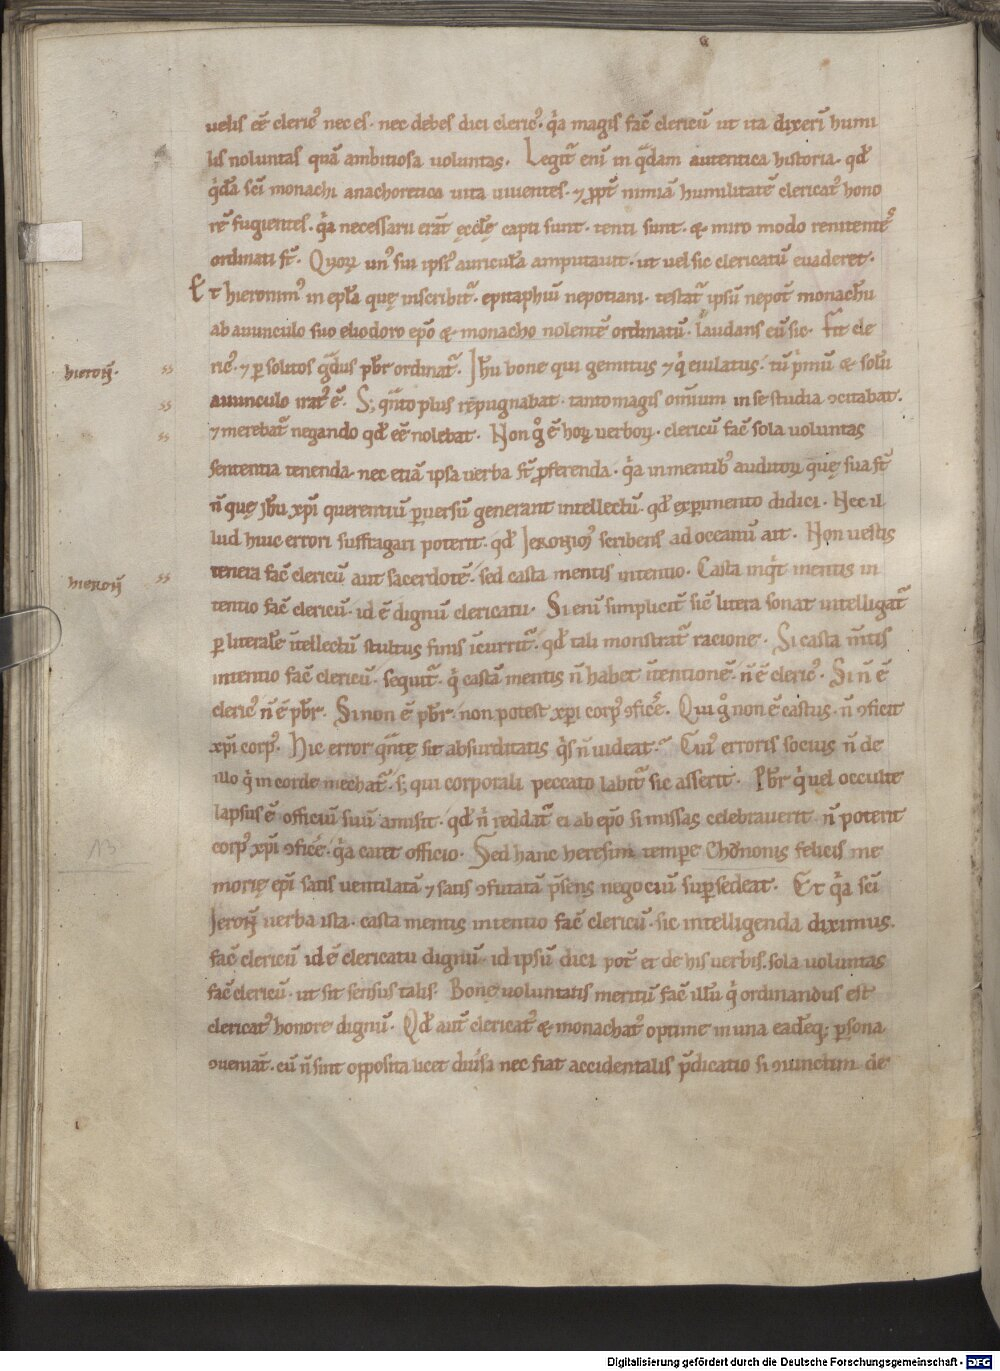 uelis eē cleric᷒ nec es. nec debes dici cleric᷒. q̇a magis facē clericū ut ita dixeri᷑ humi
lis noluntas quā ambitiosa uoluntas. Legit᷑ eni᷑ in q̄dam autentica historia. qd̄
q̇dā sc̄i monachi anachoretica uita uiuentes. ⁊ ꝓpt̄ nimiā humilitatē clericat᷒ hono
rē fugientes. q̇a necessarii erāt ęcclę̄ capti sunt. tenti sunt. & miro modo renitentes
ordinati st̄. Quoꝝ un᷒ sui ipsi᷒ auriculā amputauit. ut uel sic clericatū euaderet.
Et hieronim᷒ in ep̄la quę inscribit᷑. epitaphiū nepotiani. testat᷑ ipsū nepot̄ monachū
ab auunculo suo eliodoro ep̄o & monacho nolentē ordinatū. laudans eū sic. Fit cle
hieroñ.
ric᷒. ⁊ ꝑ solitos g̊dus pb̄r ordinat᷑. Ih̄u bone qui gemitus ⁊ q̇ eiulatus. tū ṗmū & solū
auunculo irat᷒ ē. S; q̄nto plus repugnabat. tanto magis omnium in se studia ꝯcitabat.
⁊ merebat᷑ negando qd̄ eē nolebat. Non g̊ ē hoꝝ uerboꝝ. clericū facē sola uoluntas
sententia tenenda. nec etiā ipsa uerba st̄ ꝓferenda. q̇a in mentib᷒ auditoꝝ quę sua st̄
n̄ quę ih̄u xp̄i querentiū ꝑuersū generant intellectū. qd̄ exꝑimento didici. Nec il
lud huic errori suffragari poterit. qd̄ Ieronim᷒ scribens ad oceanū ait. Non uestis
hieroñ
tenera facē clericū aut sacerdotē. sed casta mentis intentio. Casta inq̇t mentis in
tentio facē clericū. id ē dignū clericatu. Si eni᷑ simplicit᷑ sic̄ litera sonat intelligat᷑
ꝑ literalē īntellectū stultus finis īcurrit᷑. qd̄ tali monstrat᷑ racione. Si casta m̄tis
intentio facē clericū. sequit᷑. q̇ castā mentis n̄ habet īntentionē. n̄ ē cleric᷒. Si n̄ ē
cleric᷒ n̄ ē pb̄r. Si non ē pb̄r. non potest xp̄i corp᷒ ꝯficē. Qui g̊ non ē castus. n̄ ꝯficit
xp̄i corp᷒. Hic error q̄ntę sit absurditatis q̇s n̄ uideat. Cui᷒ erroris socius n̄ de
illo q̇ in corde mechat᷑. s; qui corporali peccato labit᷑ sic asserit. Pb̄r q̇ uel occulte
lapsus ē officiū suū amisit. qd̄ n̄ reddat᷑ ei ab ep̄o si missas celebrauerit. n̄ poterit
corp᷒ xp̄i ꝯficē. q̇a caret officio. Sed hanc heresim tempore Chononis felicis me
13
morię ep̄i satis uentilatā ⁊ satis ꝯfutatā p̄sens negociū suꝑsedeat. Et q̇a sc̄i
Ieroñ uerba ista. casta mentis intentio facē clericū. sic intelligenda diximus.
facē clericū id ē clericatu dignū. id ipsū dici pot̄ et de his uerbis. sola uoluntas
facē clericū. ut sit sensus talis. Bonę uoluntatis meritū facē illū q̇ ordinandus est
clericat᷒ honore dignū. Qd̄ aut̄ clericat᷒ & monachat᷒ optime in una eadēq; ꝑsona
ꝯueniāt. cū n̄ sint opposita licet diūsa nec fiat accidentalis p̄dicatio si ꝯiunctim de
Digitalisierung gefördert durch die Deutsche Forschungsgemeinschaft - DFG